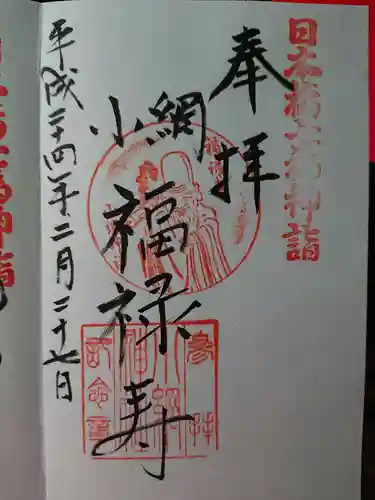 日本橋七福神詣
奉拝
小網
福禄寿
平成二十四年二月二十七日
参拝